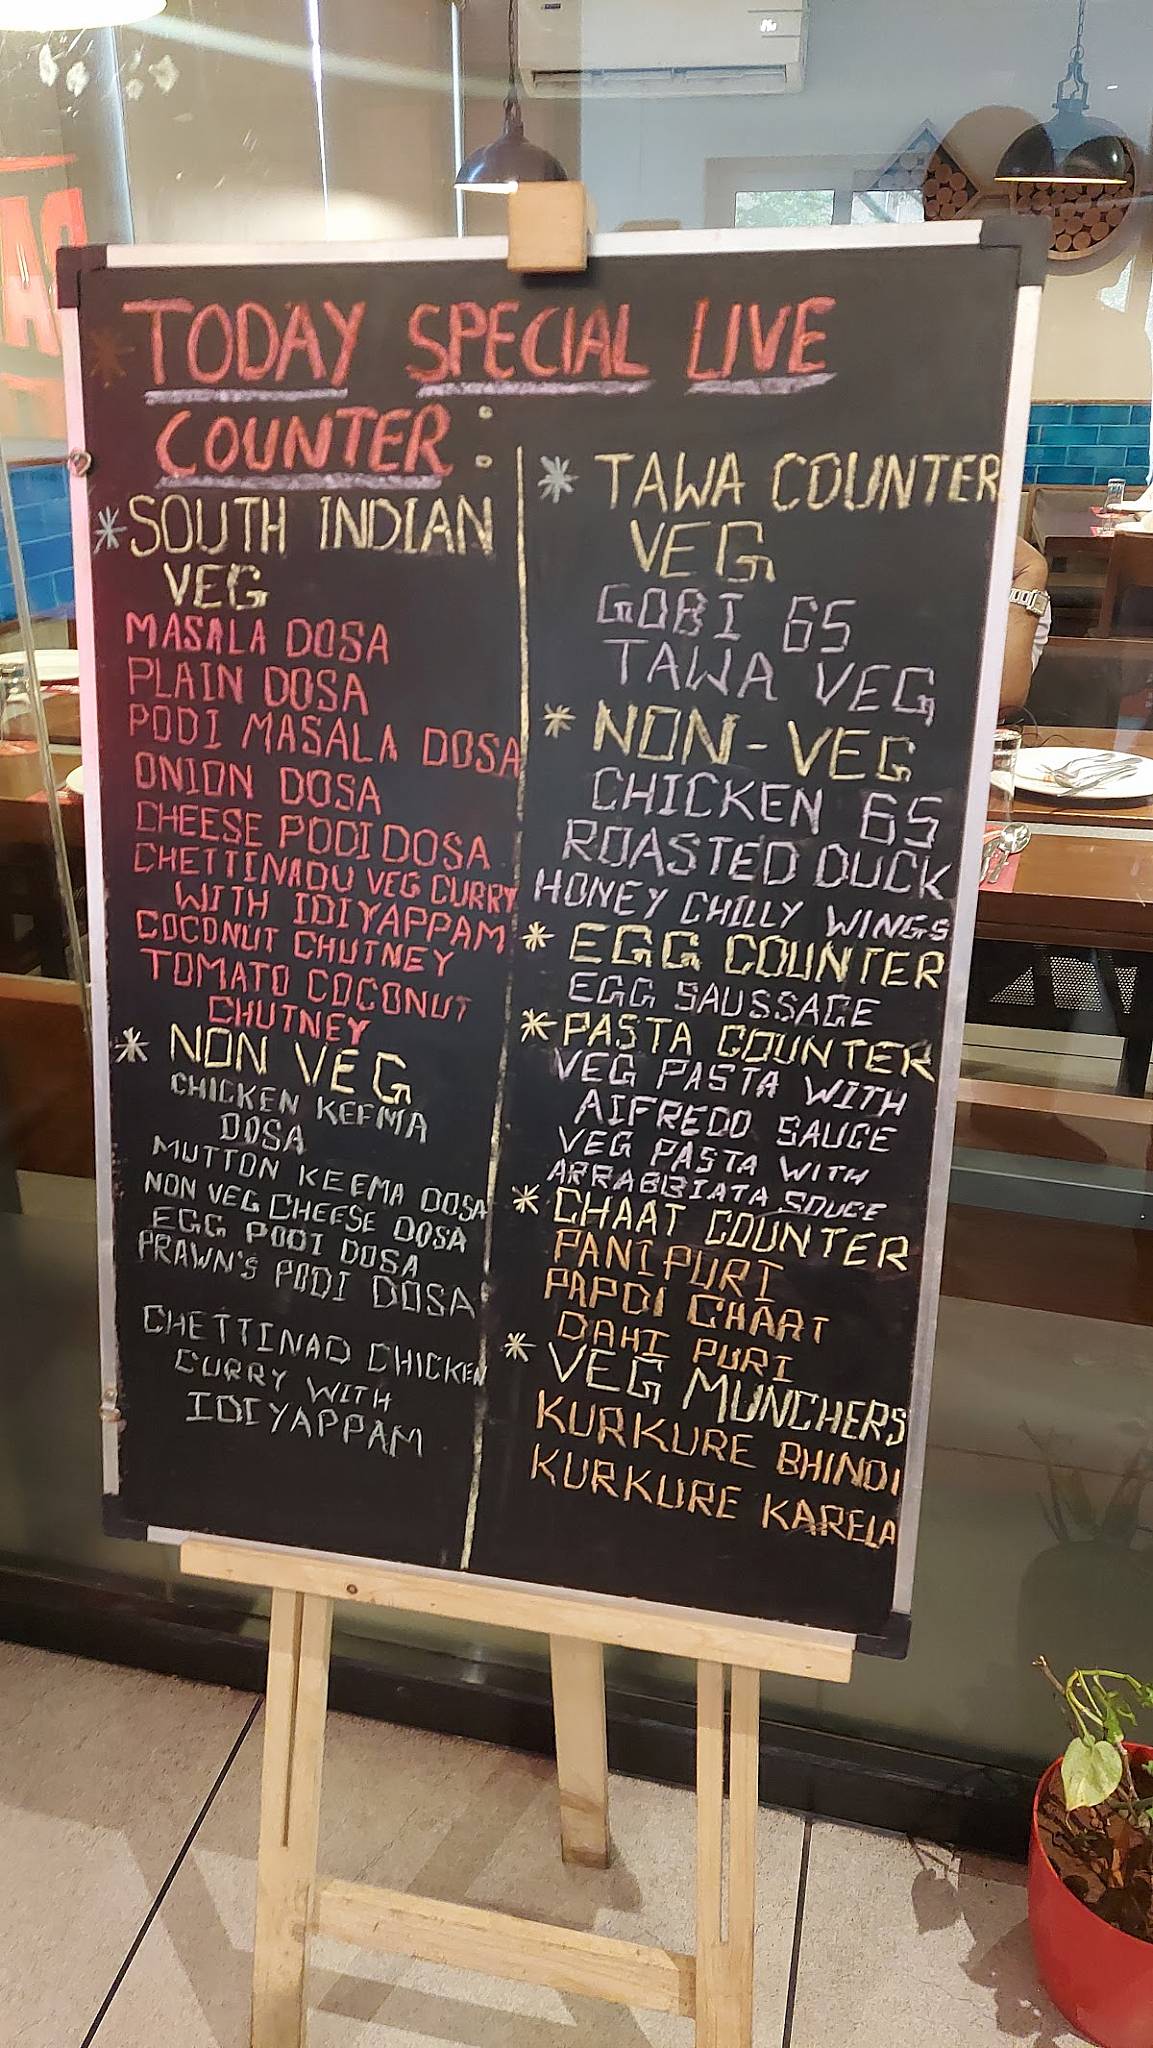 TODAY SPECIAL LIVE
COUNTER :
* SOUTH INDIAN
VEG
MASALA DOSA
PLAIN DOSA
PODI MASALA DOSA
ONION DOSA
CHEESE PODI DOSA
CHETTINADU VEG CURRY
WITH IDIYAPPAM
COCONUT CHUTNEY
TOMATO COCONUT
CHUTNEY
* NON VEG
CHICKEN KEEMA
DOSA
MUTTON KEEMA DOSA
NON VEG CHEESE DOSA
EGG PODI DOSA
PRAWN'S PODI DOSA
CHETTINAD CHICKEN
CURRY WITH
IDIYAPPAM
* TAWA COUNTER
VEG
GOBI 65
TAWA VEG
* NON-VEG
CHICKEN 65
ROASTED DUCK
HONEY CHILLY WINGS
* EGG COUNTER
EGG SAUSSAGE
* PASTA COUNTER
VEG PASTA WITH
AIFREDO SAUCE
VEG PASTA WITH
ARRABBIATA SOUCE
* CHAAT COUNTER
PANIPURI
PAPDI CHAAT
DAHI PURI
* VEG MUNCHERS
KURKURE BHINDI
KURKURE KARELA